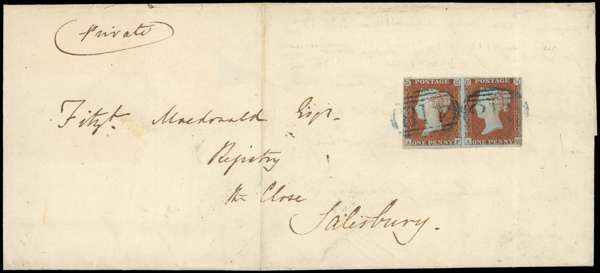 Private
POSTAGE POSTAGE
ONE PENNY ONE PENNY
Fitzht. Macdonald Esqr.
Registry
The Close
Salisbury.